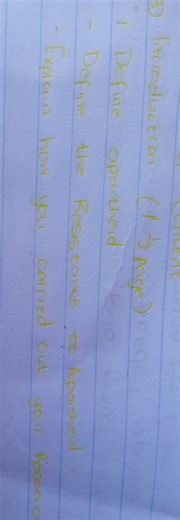 Content
3) Introduction (1 ½ page)
1 Define apartheid
- Define the Resistance to Apartheid
- Explain how you carried out your Research